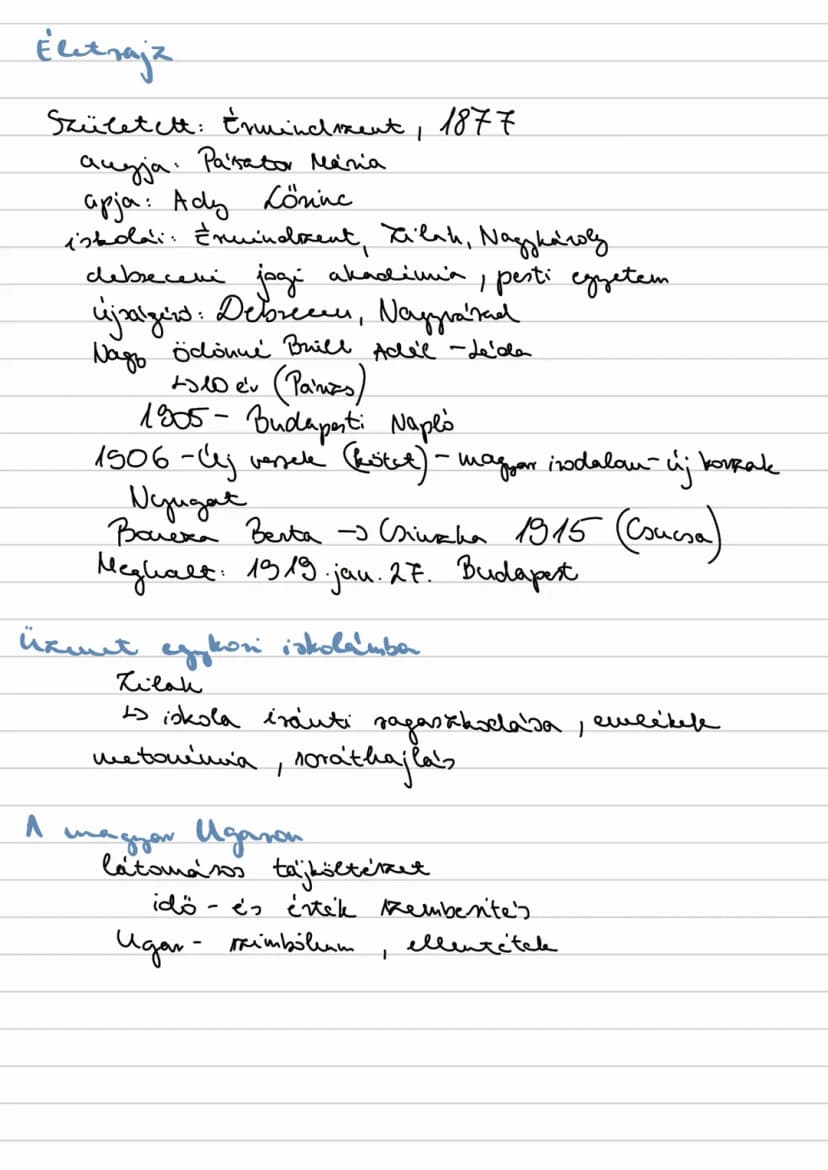 Életrajz
Született: Érmindszent, 1877
anyja: Pásztor Mária
apja: Ady Lőrinc
iskolái: Érmindszent, Zilah, Nagykároly
debreceni jogi akadémia, pesti egyetem
újságíró: Debrecen, Nagyvárad
Nagy Ödönné Brüll Adél - Léda
↳ 10 év (Párizs)
1905 - Budapesti Napló
1906 - Új versek (kötet) - magyar irodalom - új korszak
Nyugat
Boncza Berta → Csinszka 1915 (Csucsa)
Meghalt: 1919. jan. 27. Budapest
Üzenet egykori iskolámba
Zilah
↳ iskola iránti ragaszkodása, emlékek
metonímia, soráthajlás
A magyar Ugaron
látomásos tájköltészet
idő - és érték szembesítés
Ugar - szimbólum, ellentétek